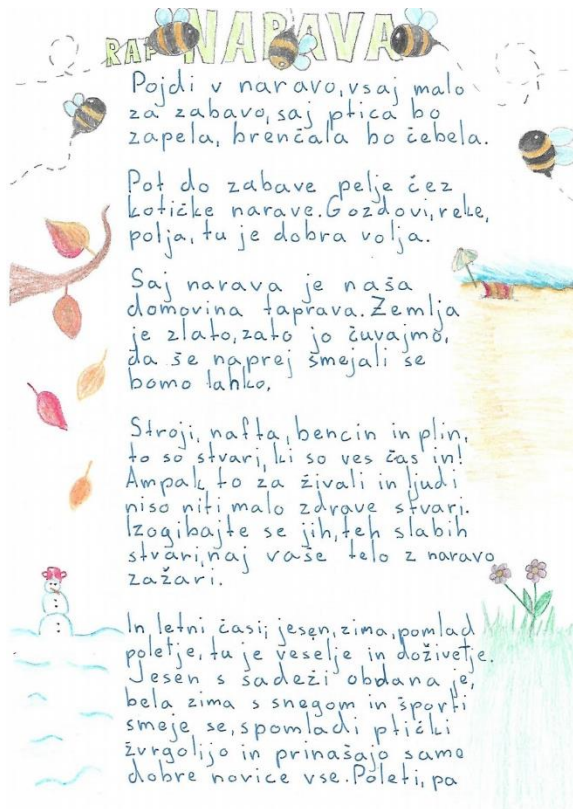 RAP NARAVA
Pojdi v naravo, vsaj malo
za zabavo, saj ptica bo
zapela, brenčala bo čebela.
Pot do zabave pelje čez
kotičke narave. Gozdovi, reke,
polja, tu je dobra volja.
Saj narava je naša
domovina taprava. Zemlja
je zlato, zato jo čuvajmo,
da še naprej smejali se
bomo lahko.
Stroji, nafta, bencin in plin,
to so stvari, ki so ves čas in!
Ampak to za živali in ljudi
niso niti malo zdrave stvari.
Izogibajte se jih, teh slabih
stvari, naj vaše telo z naravo
zažari.
In letni časi; jesen, zima, pomlad
poletje, tu je veselje in doživetje.
Jesen s sadeži obdana je,
bela zima s snegom in športi
smeje se, spomladi ptički
žvrgolijo in prinašajo same
dobre novice vse. Poleti, pa